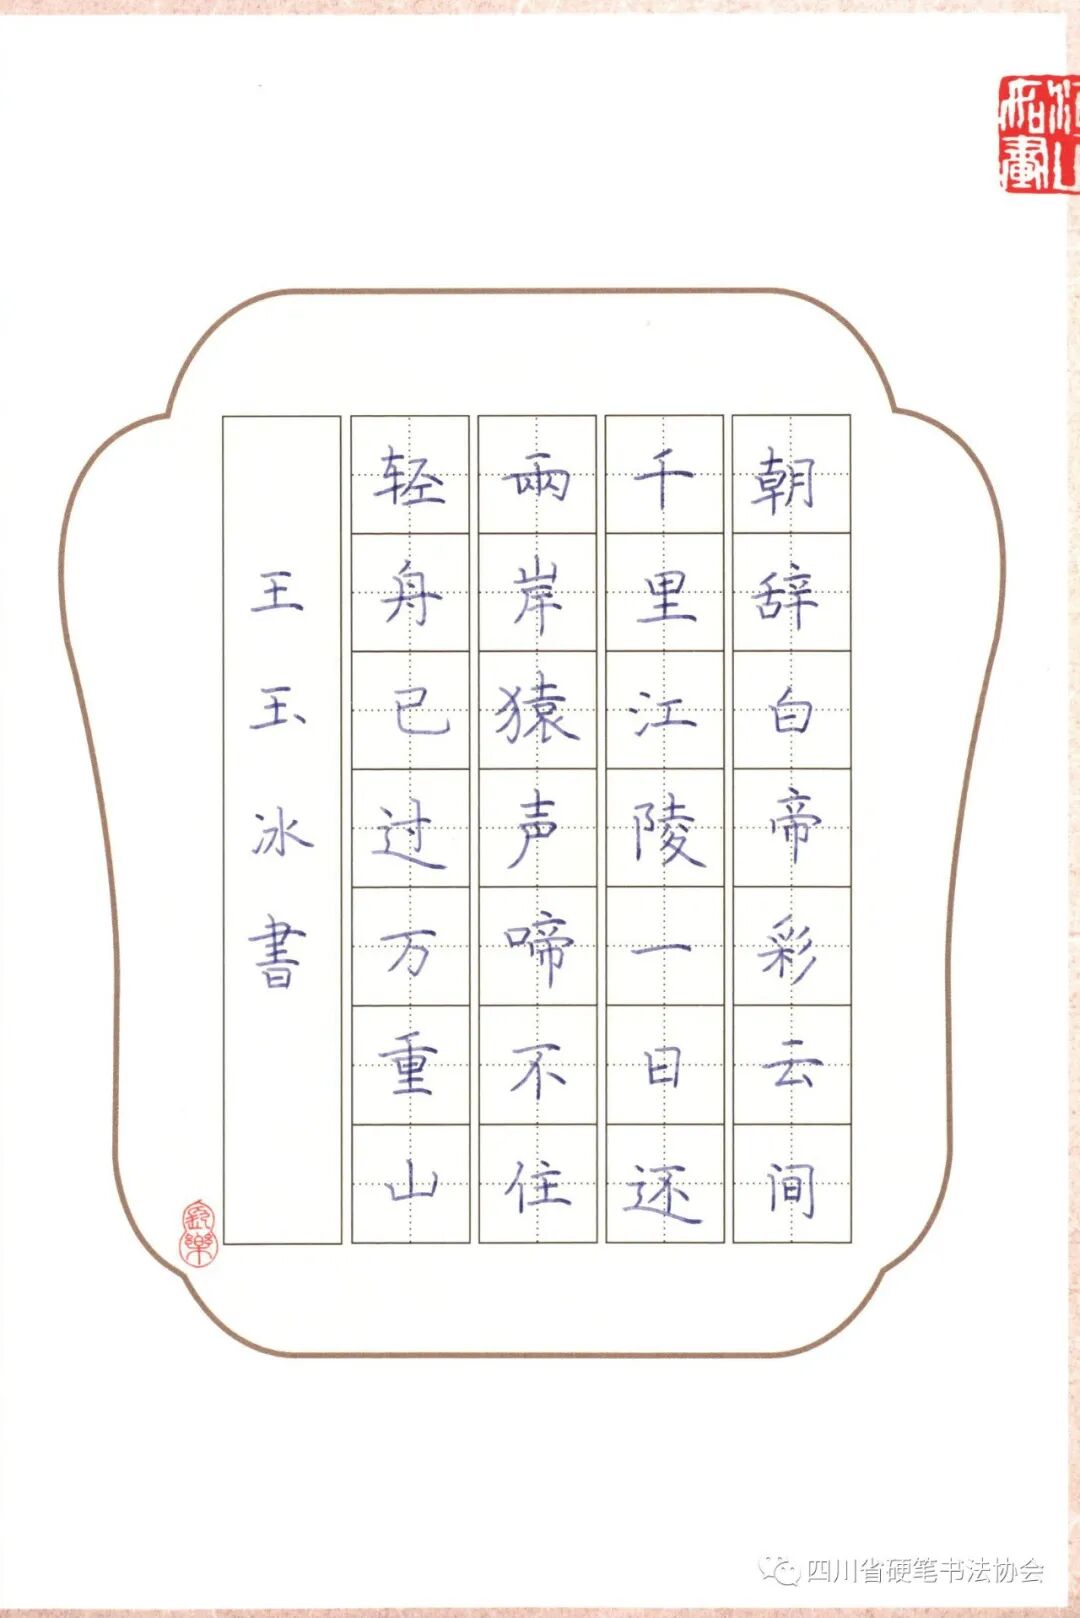 朝辞白帝彩云间
千里江陵一日还
兩岸猿声啼不住
轻舟已过万重山
王玉冰書
四川省硬笔书法协会